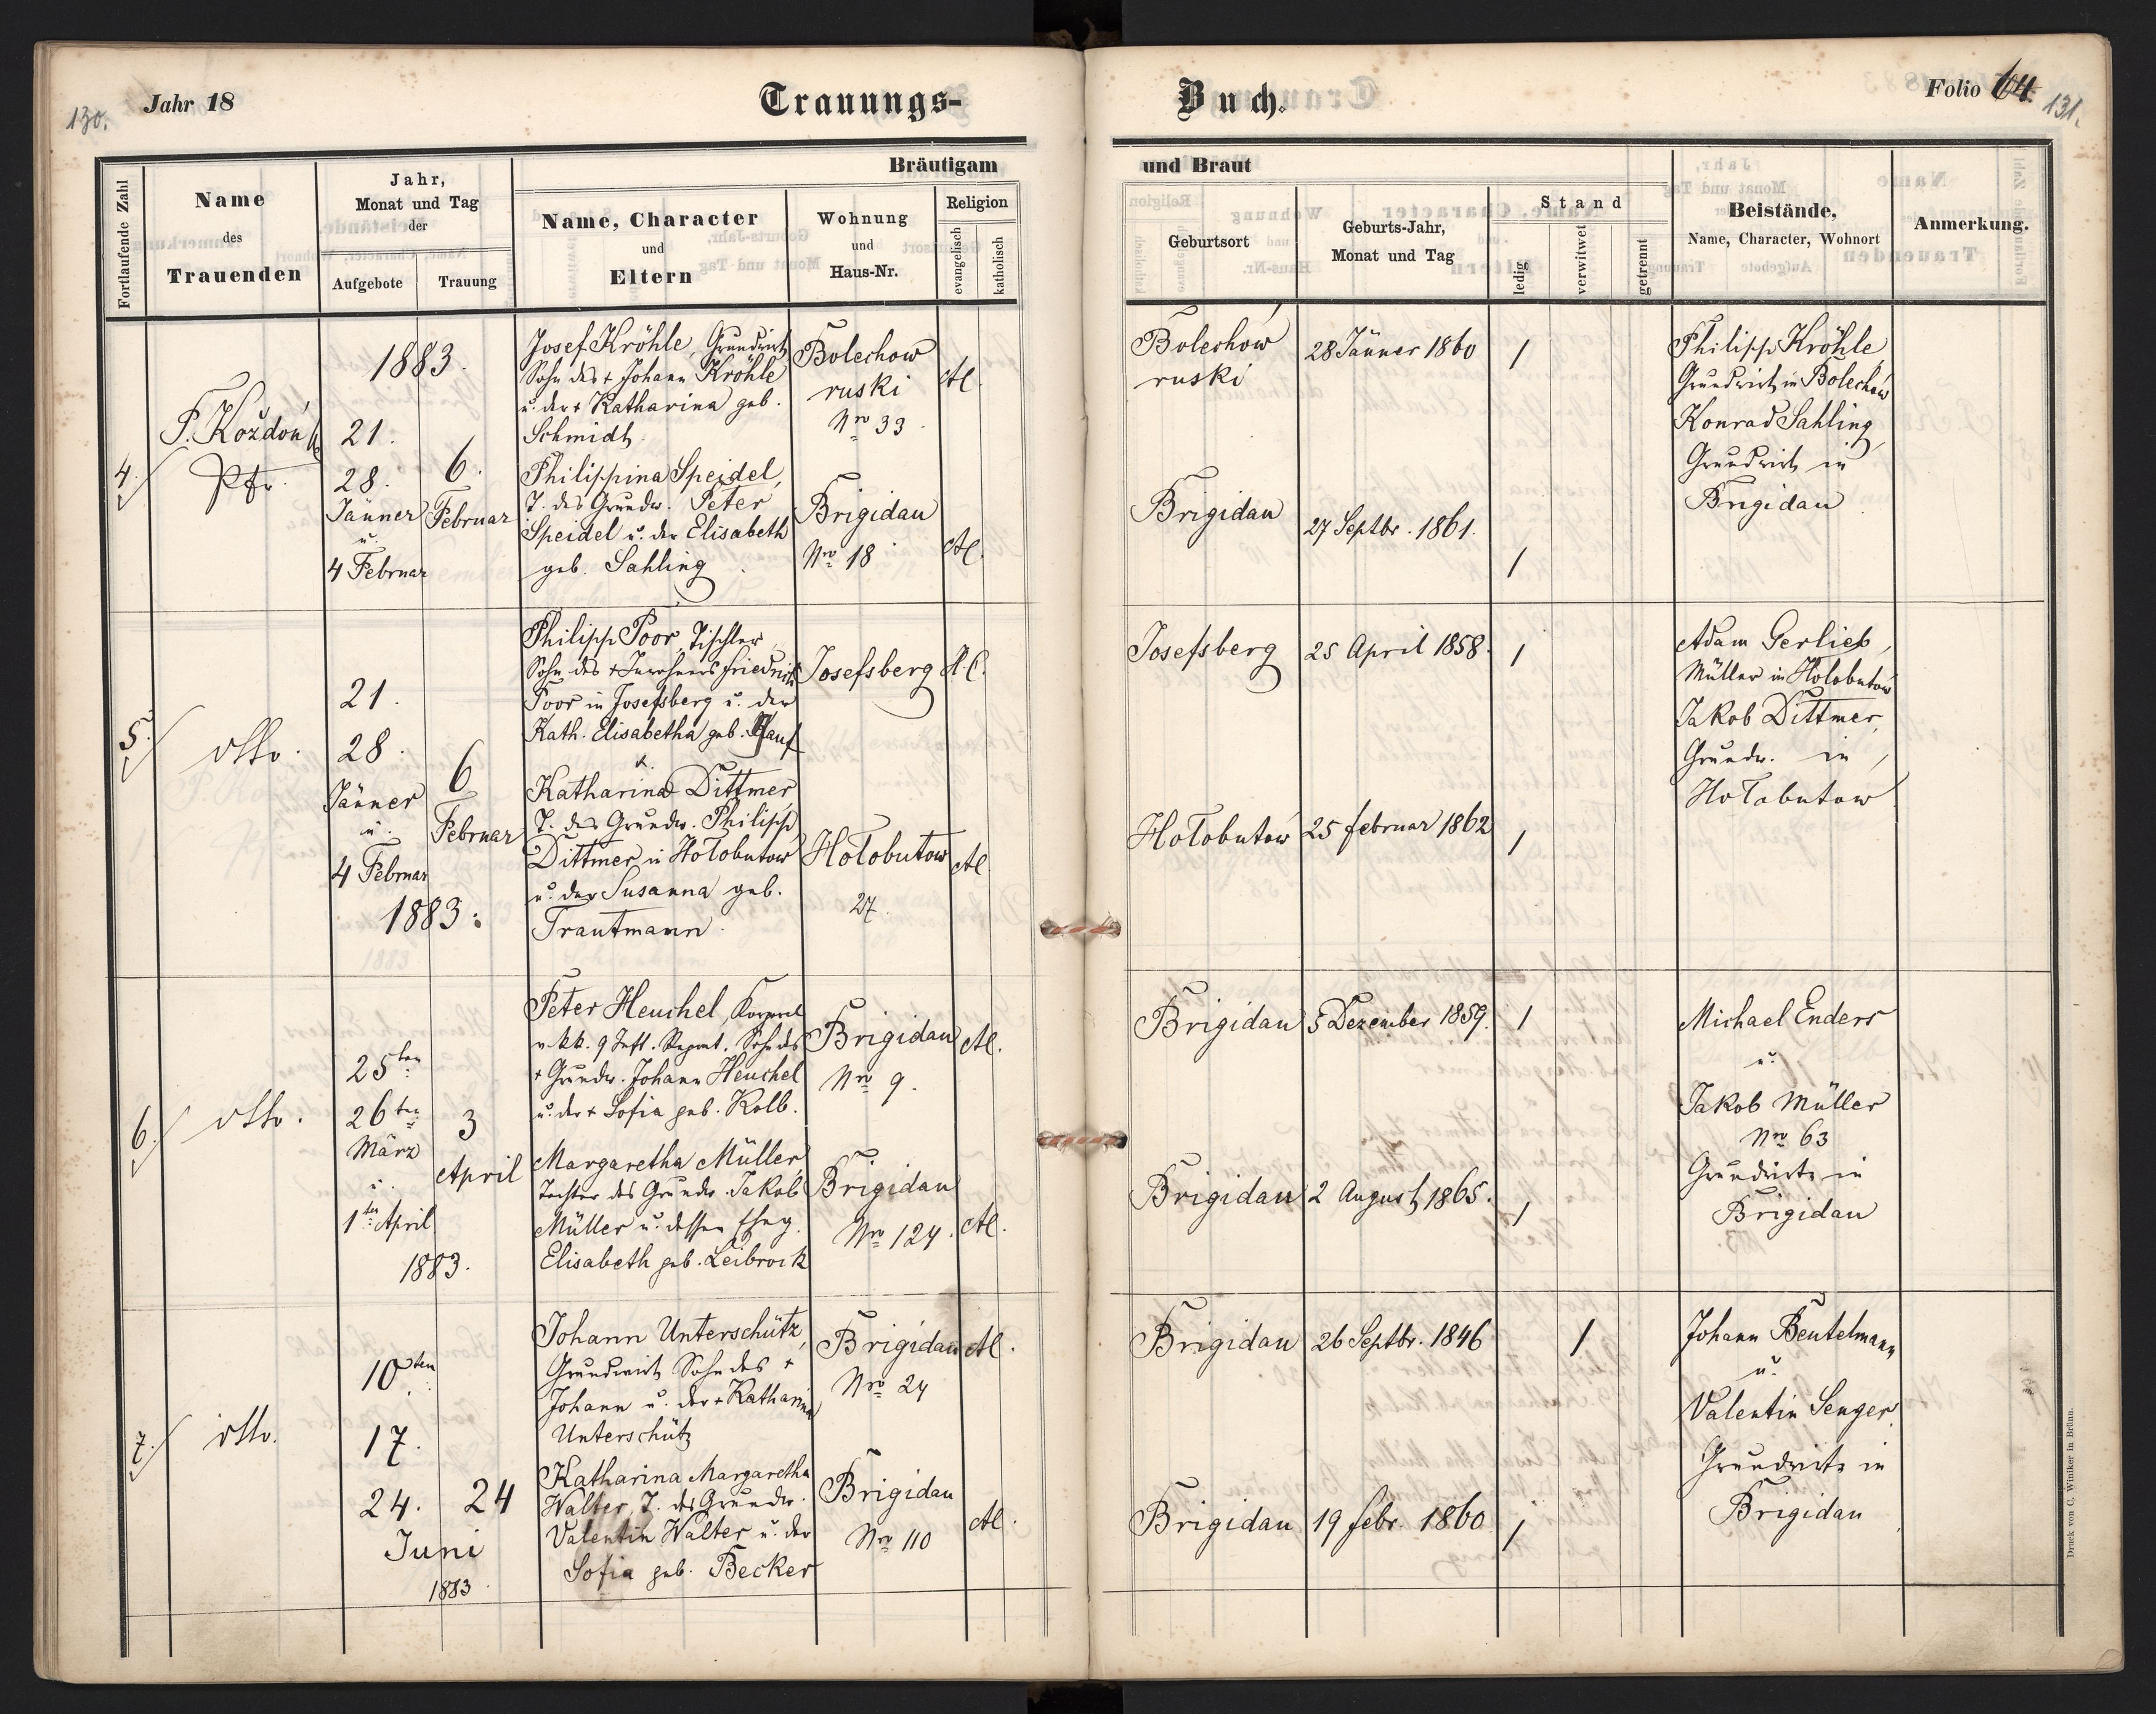 130.
Jahr 18
Trauungs-
Fortlaufende Zahl
Name
des
Trauenden
Jahr,
Monat und Tag
der
Aufgebote
Trauung
Bräutigam
Name, Character
und
Eltern
Wohnung
und
Haus-Nr.
Religion
evangelisch
katholisch
4.
P. Koždoń
Pfr.
1883.
21.
28.
Jänner
u.
4 Februar
6.
Februar
Josef Kröhle, Grundwirt
Sohn des + Johann Kröhle
u. der + Katharina geb.
Schmidt
Bolechow
ruski
Nro 33.
Philippina Speidel,
T. des Grundw. Peter
Speidel u. der Elisabeth
geb. Sahling
Brigidau
Nro 18
5.
dtto.
21.
28.
Jänner
u.
4 Februar
1883.
6
Februar
Philipp Poor, Tischler
Sohn des + Inwohners Friedrich
Poor in Josefsberg u. der
Kath. Elisabetha geb.
u.
Josefsberg
H.C.
Katharina Dittmer
T. des Grundw. Philipp
Dittmer in Hołobutow
u. der Susanna geb.
Trautmann.
Hołobutow
27.
6.
dtto.
25ten
26ten
März
u.
1ten April
1883.
3
April
Peter Heuchel, Korporal
v. kk. 9 Inft. Regmt. Sohn des
+ Grundw. Johann Heuchel
u. der + Sofia geb. Kolb.
Brigidau
Nro 9.
Margaretha Müller,
Tochter des Grundw. Jakob
Müller u. dessen Eheg.
Elisabeth geb. Leibrock
Brigidau
Nro 124.
7.
dtto.
10ten
17.
24.
24
Juni
1883.
Johann Unterschütz,
Grundwirt Sohn des +
Johann u. der + Katharina
Unterschütz
Brigidau
Nro 24
Katharina Margaretha
Walter, T. des Grundw.
Valentin Walter u. der
Sofia geb. Becker
Brigidau
Nro 110
Buch.
Folio 64.
131.
und Braut
Geburtsort
Geburts-Jahr,
Monat und Tag
Stand
ledig
verwitwet
getrennt
Beistände,
Name, Character, Wohnort
Anmerkung.
Bolechow
ruski
28 Jänner 1860
/
Philipp Kröhle
Grundwirt in Bolechów
Konrad Sahling
Grundwirt in
Brigidau
Brigidau
27 Septbr. 1861.
/
Josefsberg
25 April 1858.
/
Adam Gerlieb,
Müller in Hołobutów
Jakob Dittmer,
Grundw. in
Hołobutow
Hołobutow
25 Februar 1862
/
Brigidau
5 Dezember 1859.
/
Michael Enders
u.
Jakob Müller
Nro 63
Grundwirte in
Brigidau
Brigidau
2 August 1865.
/
Brigidau
26 Septbr. 1846
/
Johann Beutelmann
u.
Valentin Senger,
Grundwirte in
Brigidau
Brigidau
19 Febr. 1860
/
Druck von C. Winiker in Brünn.